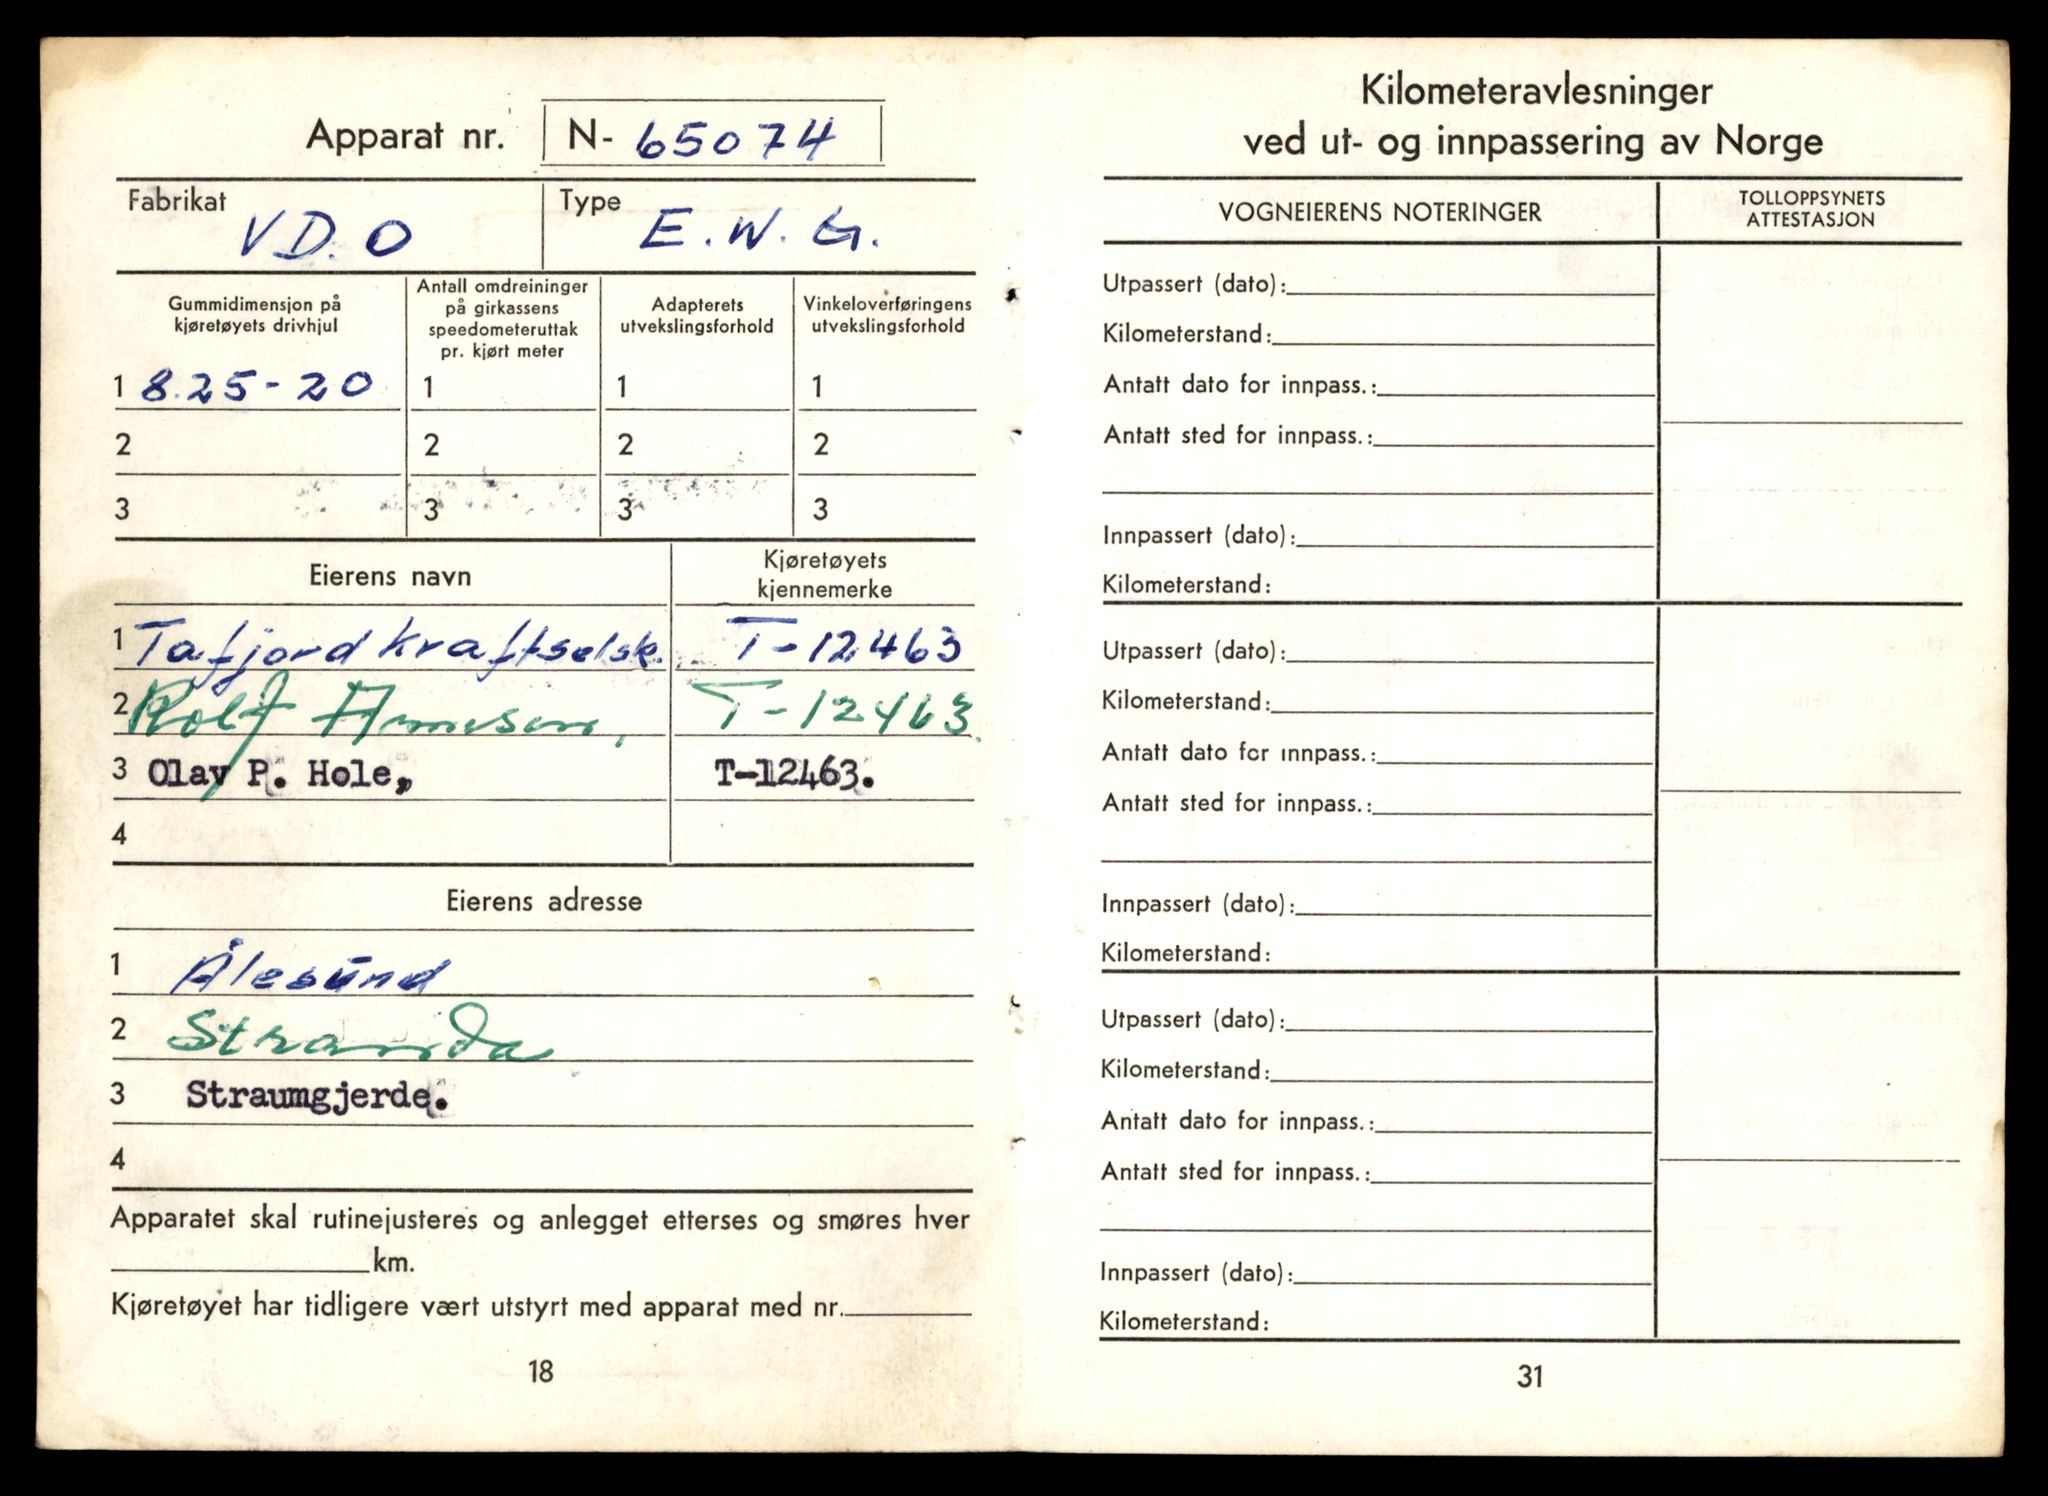 Apparat nr. N- 65074
Fabrikat
VDO
Type
E.W.G.
Gummidimensjon på
kjøretøyets drivhjul
Antall omdreininger
på girkassens
speedometeruttak
pr. kjørt meter
Adapterets
utvekslingsforhold
Vinkeloverføringens
utvekslingsforhold
1 8.25-20 1 1 1
2 2 2 2
3 3 3 3
Eierens navn
Kjøretøyets
kjennemerke
1 Tafjord kraftselsk. T-12463
2 Rolf T-12463
3 Olav P. Hole, T-12463.
4
Eierens adresse
1 Ålesund
2 Stranda
3 Straumgjerde.
4
Apparatet skal rutinejusteres og anlegget etterses og smøres hver
km.
Kjøretøyet har tidligere vært utstyrt med apparat med nr.
18
Kilometeravlesninger
ved ut- og innpassering av Norge
VOGNEIERENS NOTERINGER
TOLLOPPSYNETS
ATTESTASJON
Utpassert (dato):
Kilometerstand:
Antatt dato for innpass.:
Antatt sted for innpass.:
Innpassert (dato):
Kilometerstand:
Utpassert (dato):
Kilometerstand:
Antatt dato for innpass.:
Antatt sted for innpass.:
Innpassert (dato):
Kilometerstand:
Utpassert (dato):
Kilometerstand:
Antatt dato for innpass.:
Antatt sted for innpass.:
Innpassert (dato):
Kilometerstand:
31